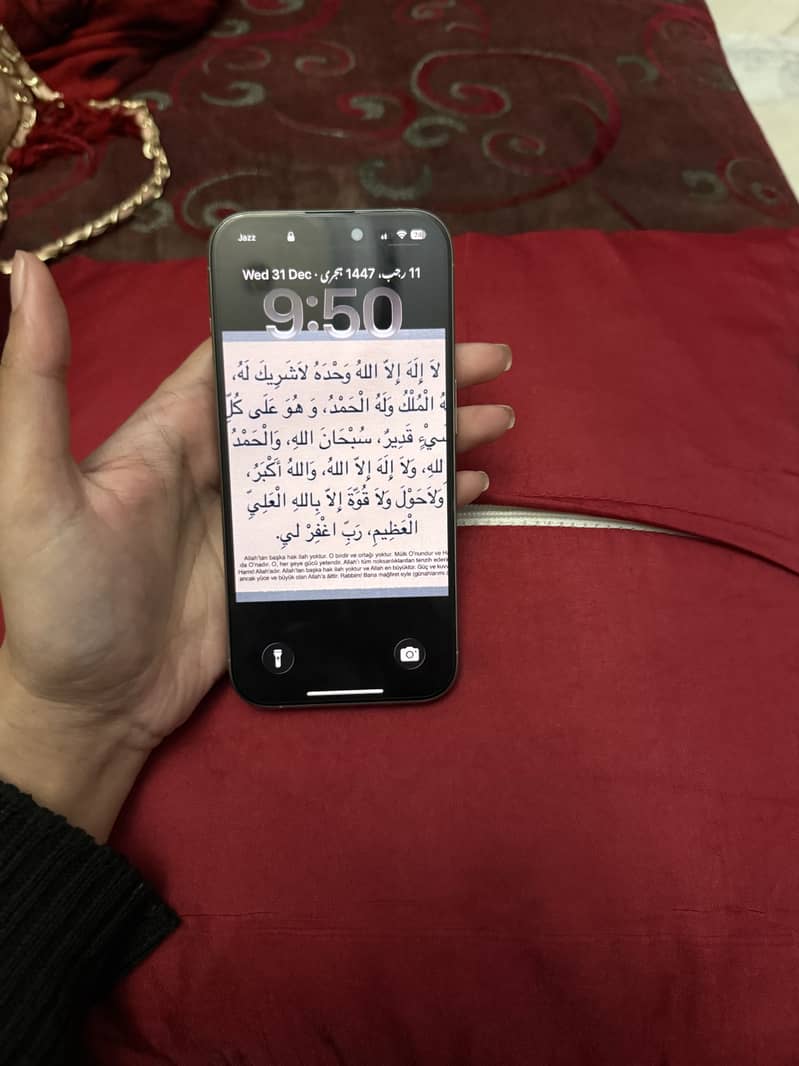 Jazz 24
Wed 31 Dec · 11 رجب، 1447 ہجری
9:50
لاَ إِلَهَ إِلاَّ اللهُ وَحْدَهُ لاَشَرِيكَ لَهُ،
الْمُلْكُ وَلَهُ الْحَمْدُ، وَ هُوَ عَلَى كُلِّ
قَدِيرٌ، سُبْحَانَ اللهِ، وَالْحَمْدُ
للهِ، وَلاَ إِلَهَ إِلاَّ اللهُ، وَاللهُ أَكْبَرُ،
وَلاَحَوْلَ وَلاَ قُوَّةَ إِلاَّ بِاللهِ الْعَلِيِّ
الْعَظِيمِ، رَبِّ اغْفِرْ لِي.
Allah'tan başka hak ilah yoktur. O birdir ve ortağı yoktur. Mülk O'nundur ve
da O'nadır. O, her şeye gücü yetendir. Allah'ı tüm noksanlıklardan tenzih
Hamd Allah'adır. Allah'tan başka hak ilah yoktur ve Allah en büyüktür. Güç ve
ancak yüce ve büyük olan Allah'a âittir. Rabbim! Bana mağfiret eyle (günahlarımı